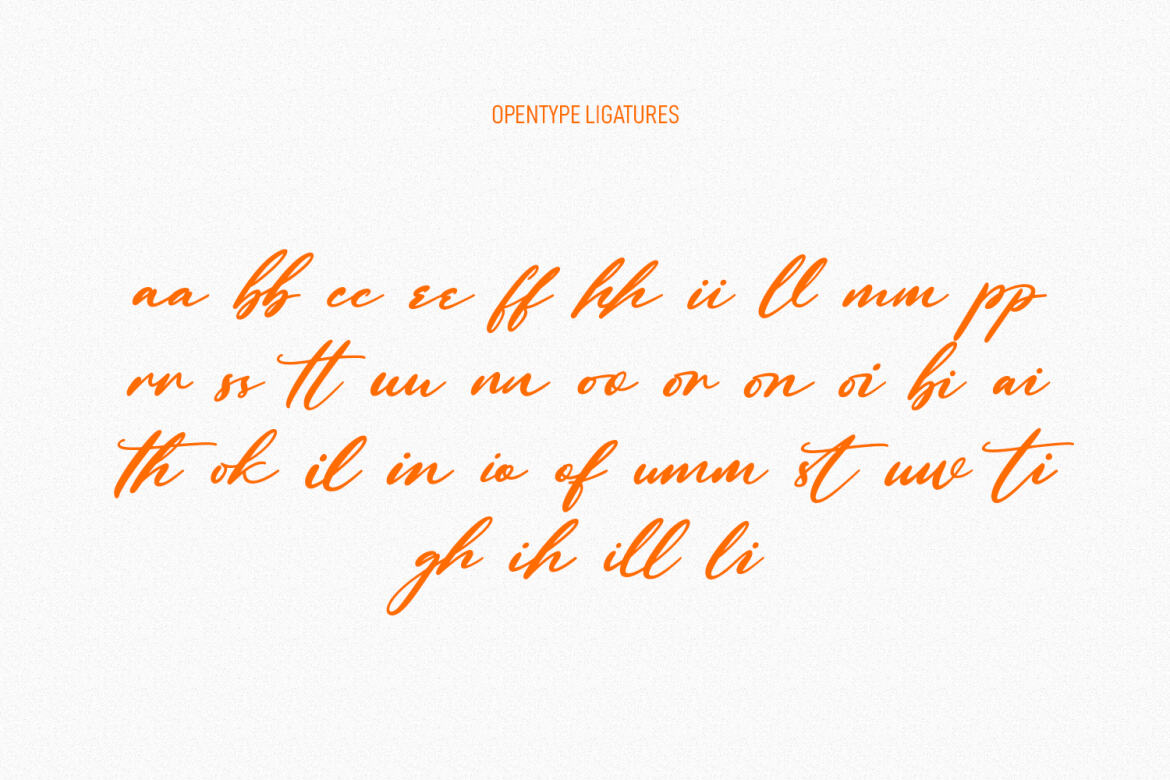 OPENTYPE LIGATURES
aa bb cc ee ff hh ii ll mm pp
rr ss tt uu nn oo or on oi bi ai
th ok il in io of umm st uw ti
gh ih ill li